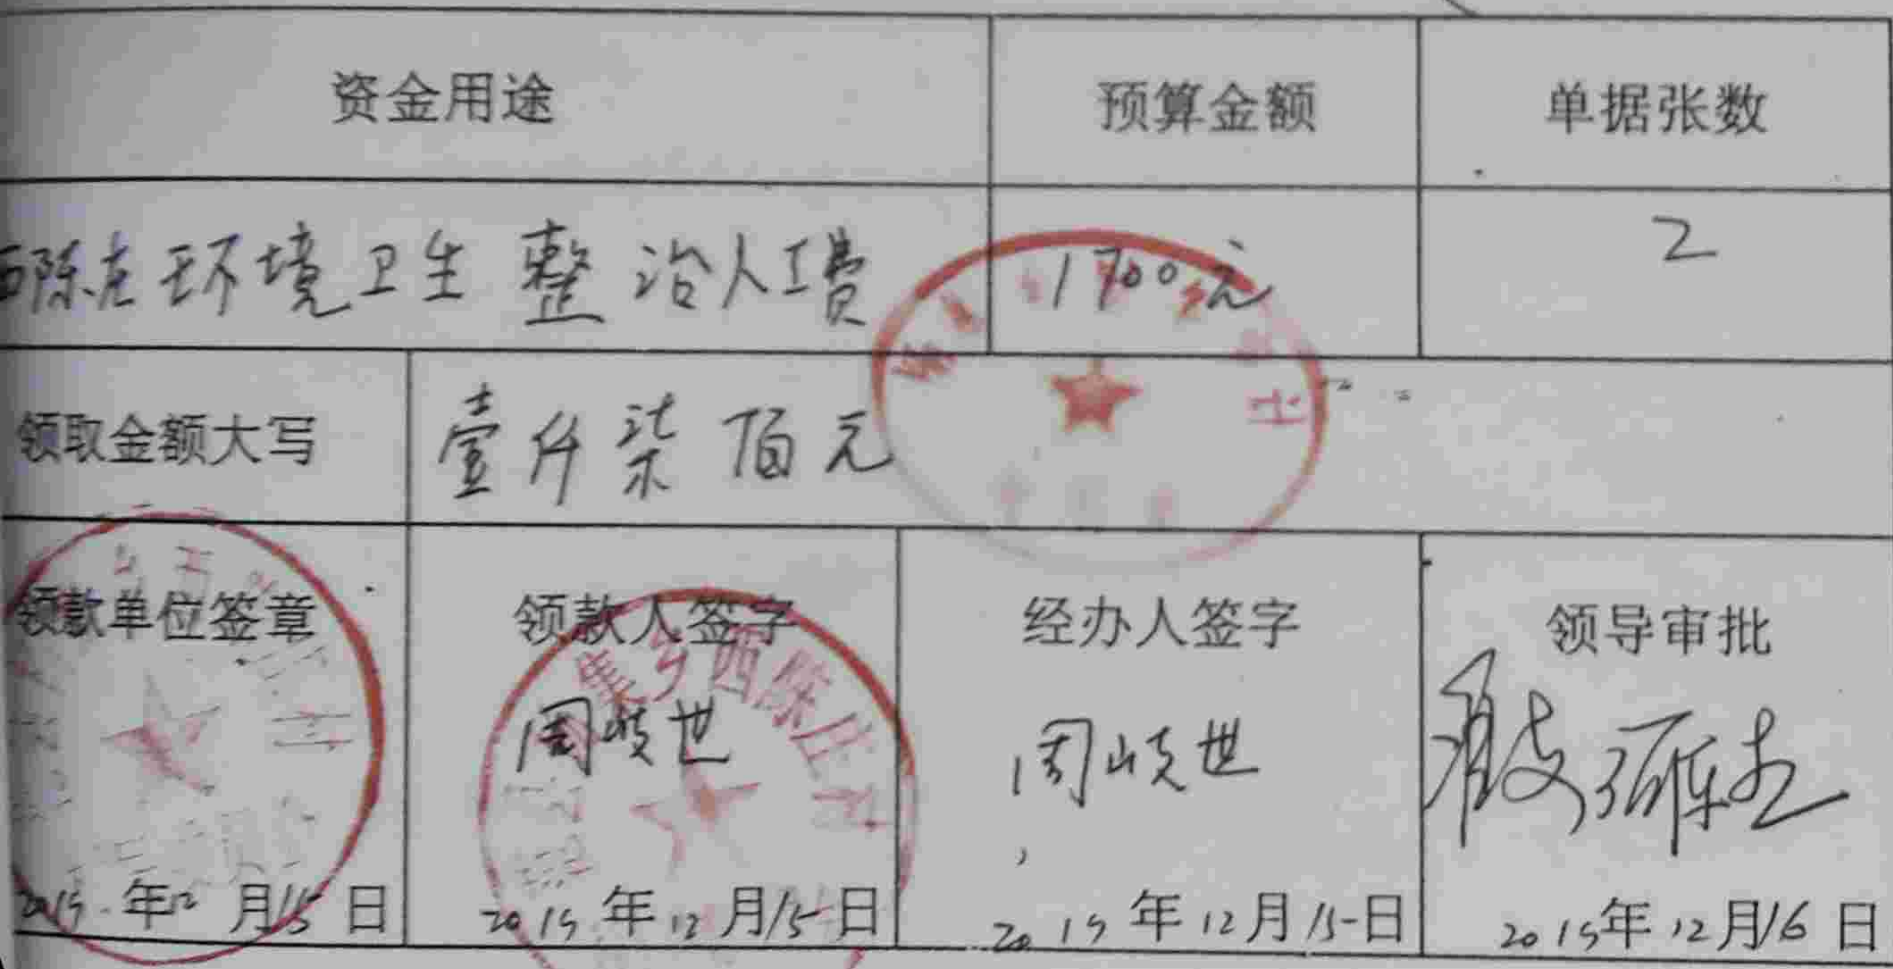 资金用途 预算金额 单据张数
西陈庄环境卫生整治人工费 1700元 2
领取金额大写 壹仟柒佰元
领款单位签章 领款人签字 经办人签字 领导审批
集乡西陈庄
周岐世 周岐世
2019年12月15日 2019年12月15日 2019年12月15日 2019年12月16日